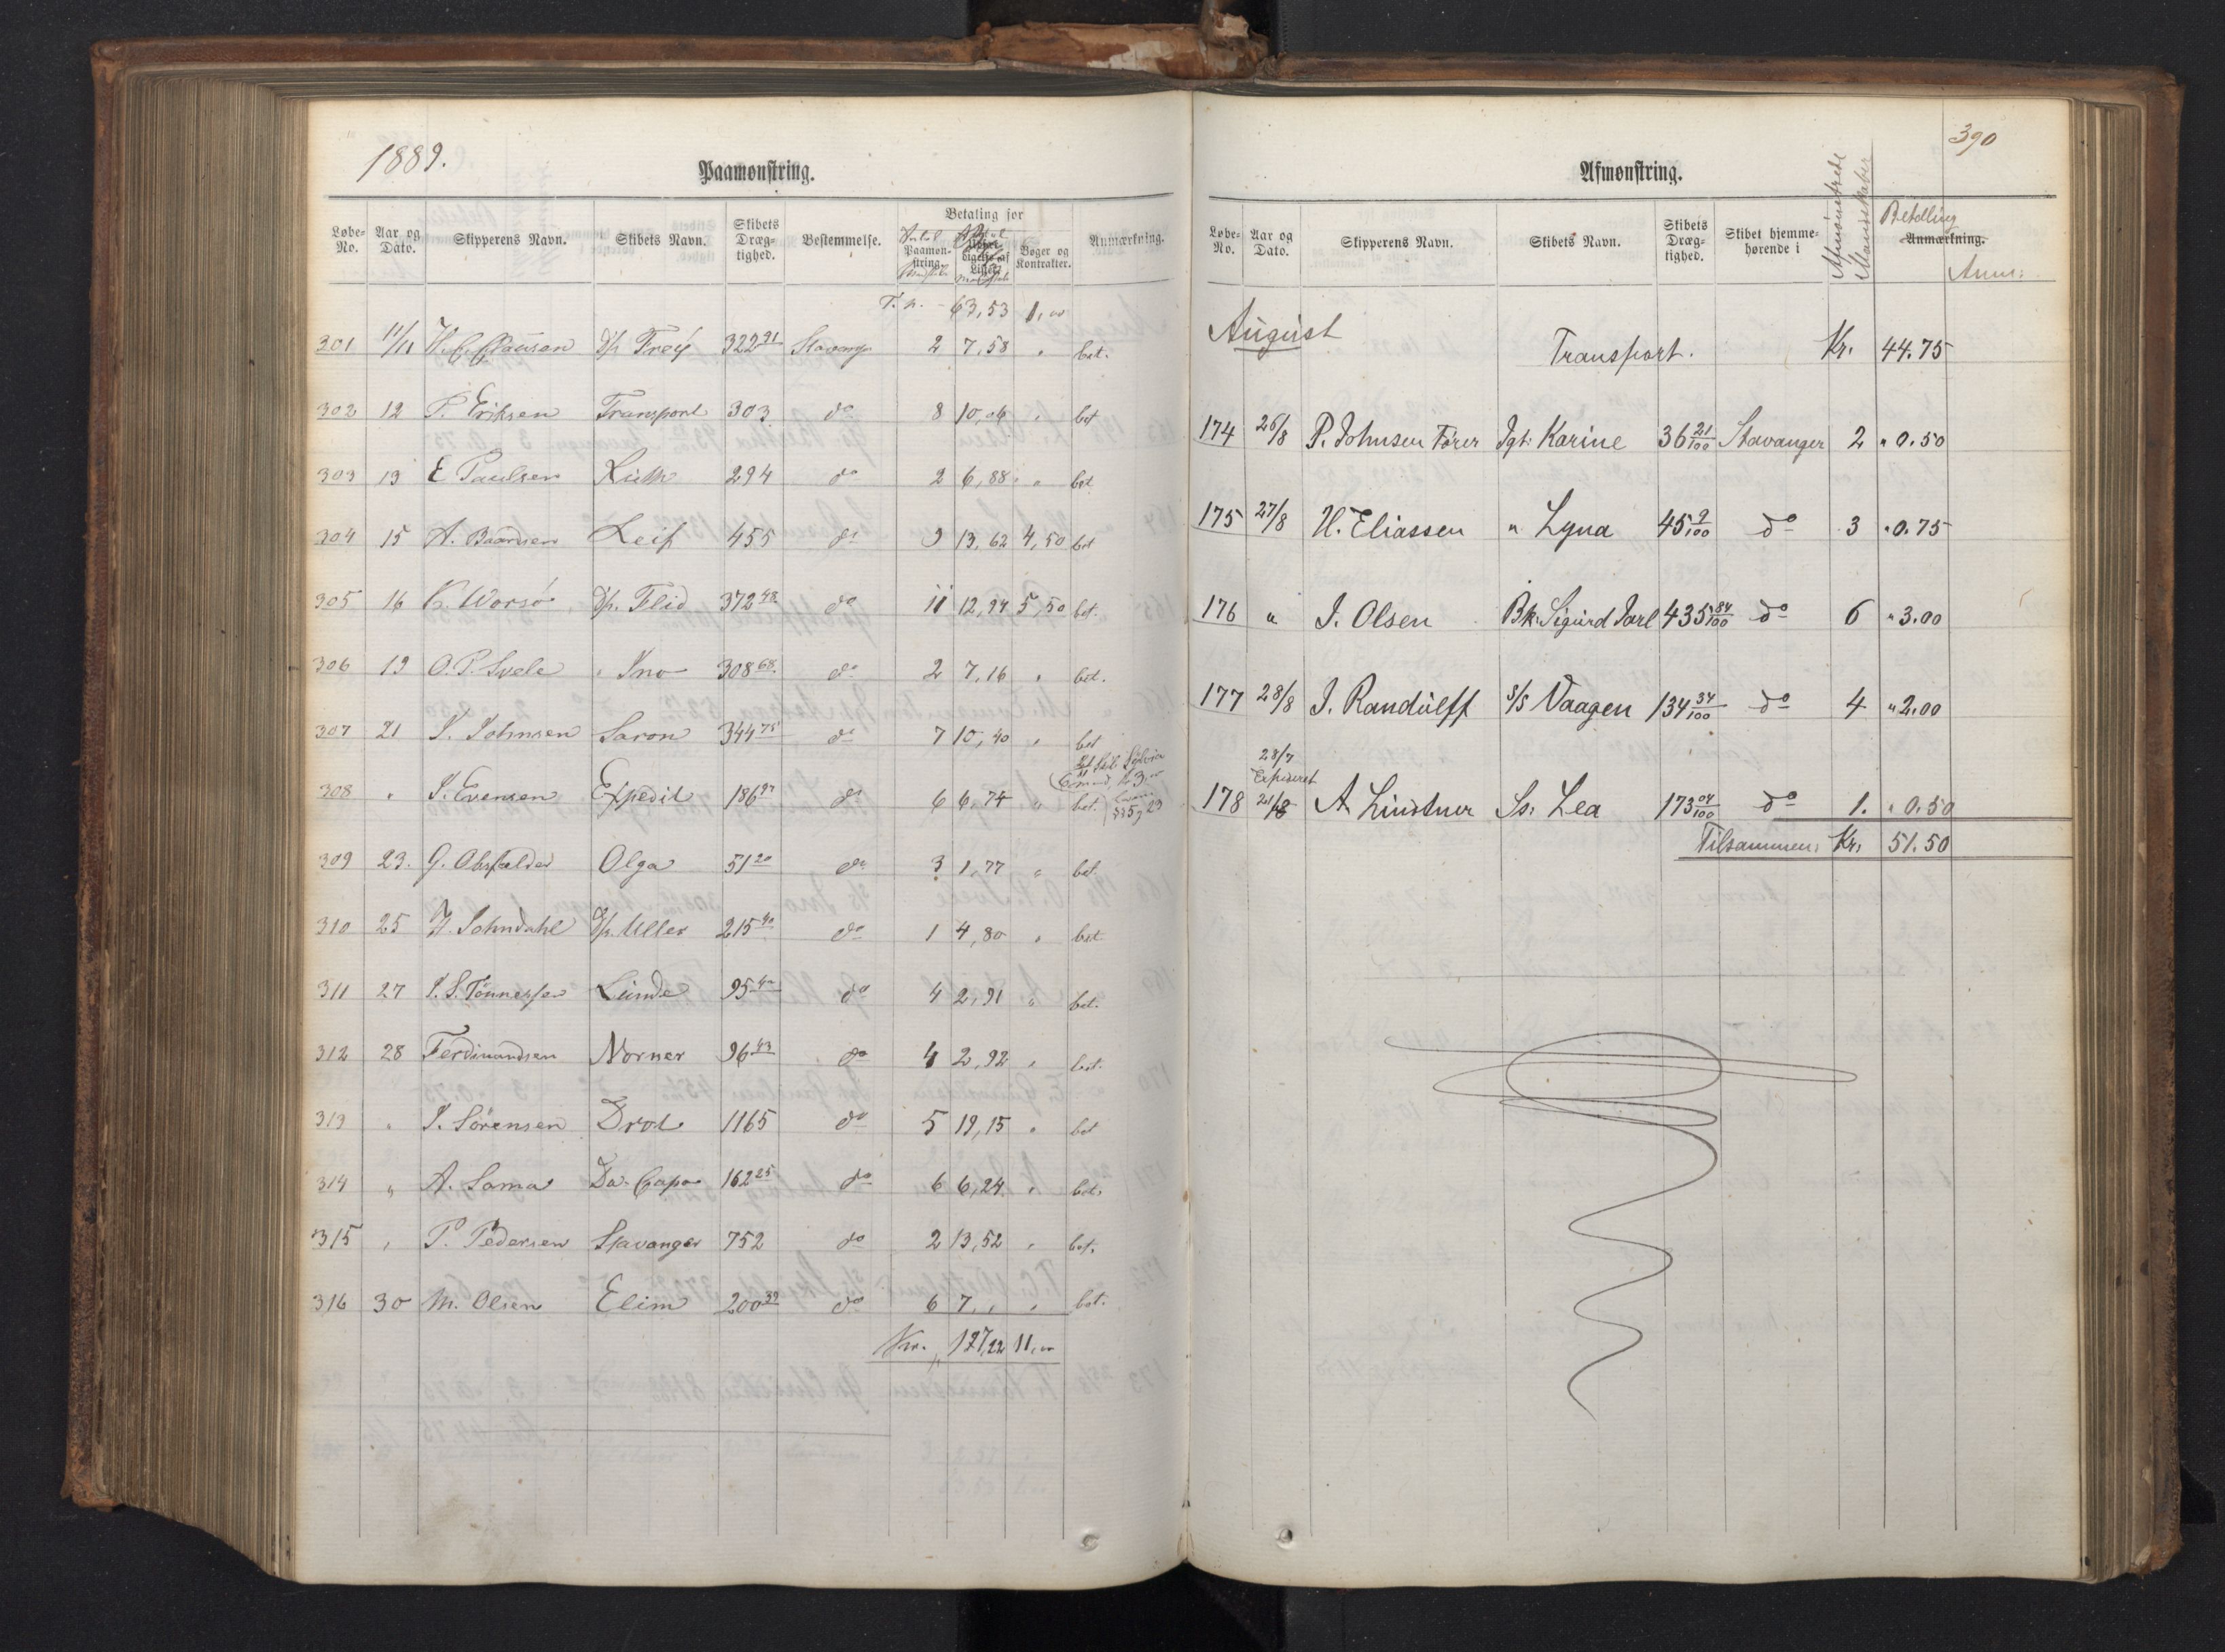 1889.
Paamonstring.
Løbe-No. Aar og Dato. Skipperens Navn. Skibets Navn. Skibets Dræg-tighed. Bestemmelse. Betaling for Paamon-string. Bøger og Kontrakter. Anmærkning.
T. p. - 63,53 1,00
301 11/11 H. C. Clausen D/p Frey 322 91 Stavanger 2 7,58 " bet.
302 12 P. Eriksen Transport 303 do 8 10,06 " bet
303 13 E Paulsen Ruth 294 do 2 6,88 " bet
304 15 A. Baardsen Leif 455 do 9 13,62 4,50 bet
305 16 K. Worsø D/p. Flid 372 48 do 11 12,94 5,50 bet.
306 19 O. P. Svele " Ino 308 68 do 2 7,16 " bet.
307 21 I. Johnsen Saron 344 75 do 7 10,40 " bet
308 " I. Evensen Expedit 186 97 do 6 6,74 " bet.
309 23. G. Obsfelder Olga 51 20 do 3 1,77 " bet.
310 25 H. Johndahl D/p. Uller 215 40 do 1 4,80 " bet
311 27 I. S. Tönnesen Lünde 95 40 do 4 2,91 " bet.
312 28 Ferdinandsen Norner 96 43 do 4 2,92 " bet.
313 " I. Sörensen Drot 1165 do 5 19,15 " bet
314 " A. Soma Da Capo 162 25 do 6 6,24 " bet.
315 " P. Pedersen Stavanger 752 do 2 13,52 " bet.
316 30 M. Olsen Elim 200 32 do 6 7," " bet.
Kr. 197,22 11,00
390
Afmonstring.
Løbe-No. Aar og Dato. Skipperens Navn. Skibets Navn. Skibets Dræg-tighed. Skibet hjemme-hørende i Afmönstrede Mandskaber Betaling Anmærkning. Anm:
August Transport. Kr. 44.75
174 26/8 P. Johnsen Förer Jgt. Karine 36 21/100 Stavanger 2 " 0.50
175 27/8 H. Eliassen " Lyna 45 9/100 do 3 " 0.75
176 " J. Olsen Bk. Sigürd Jarl 435 84/100 do 6 " 3.00
177 28/8 J. Randülff S/S Vaagen 134 34/100 do 4 " 2.00
28/7
178 A. Lindtner Ss. Lea 173 04/100 do 1. " 0.50
Tilsammen: Kr. 51.50